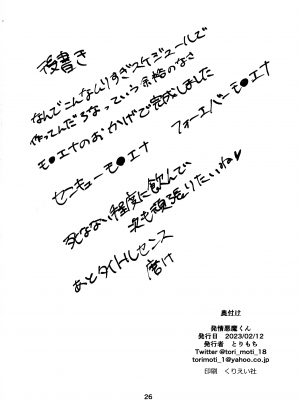 後書き
なんでこんなんりすぎスケジュールで
作ってんだろなっていう余裕のなさ
モ●エナのおかげで完成しました
センキューモ●エナ フォーエバーモ●エナ
死なない程度に飲んで
次も頑張りたいね♥
あとタイトルセンス
磨け
奥付け
発情悪魔くん
発行日 2023/02/12
発行者 とりもち
Twitter @tori_moti_18
torimoti_1@yahoo.co.jp
印刷 くりえい社
26